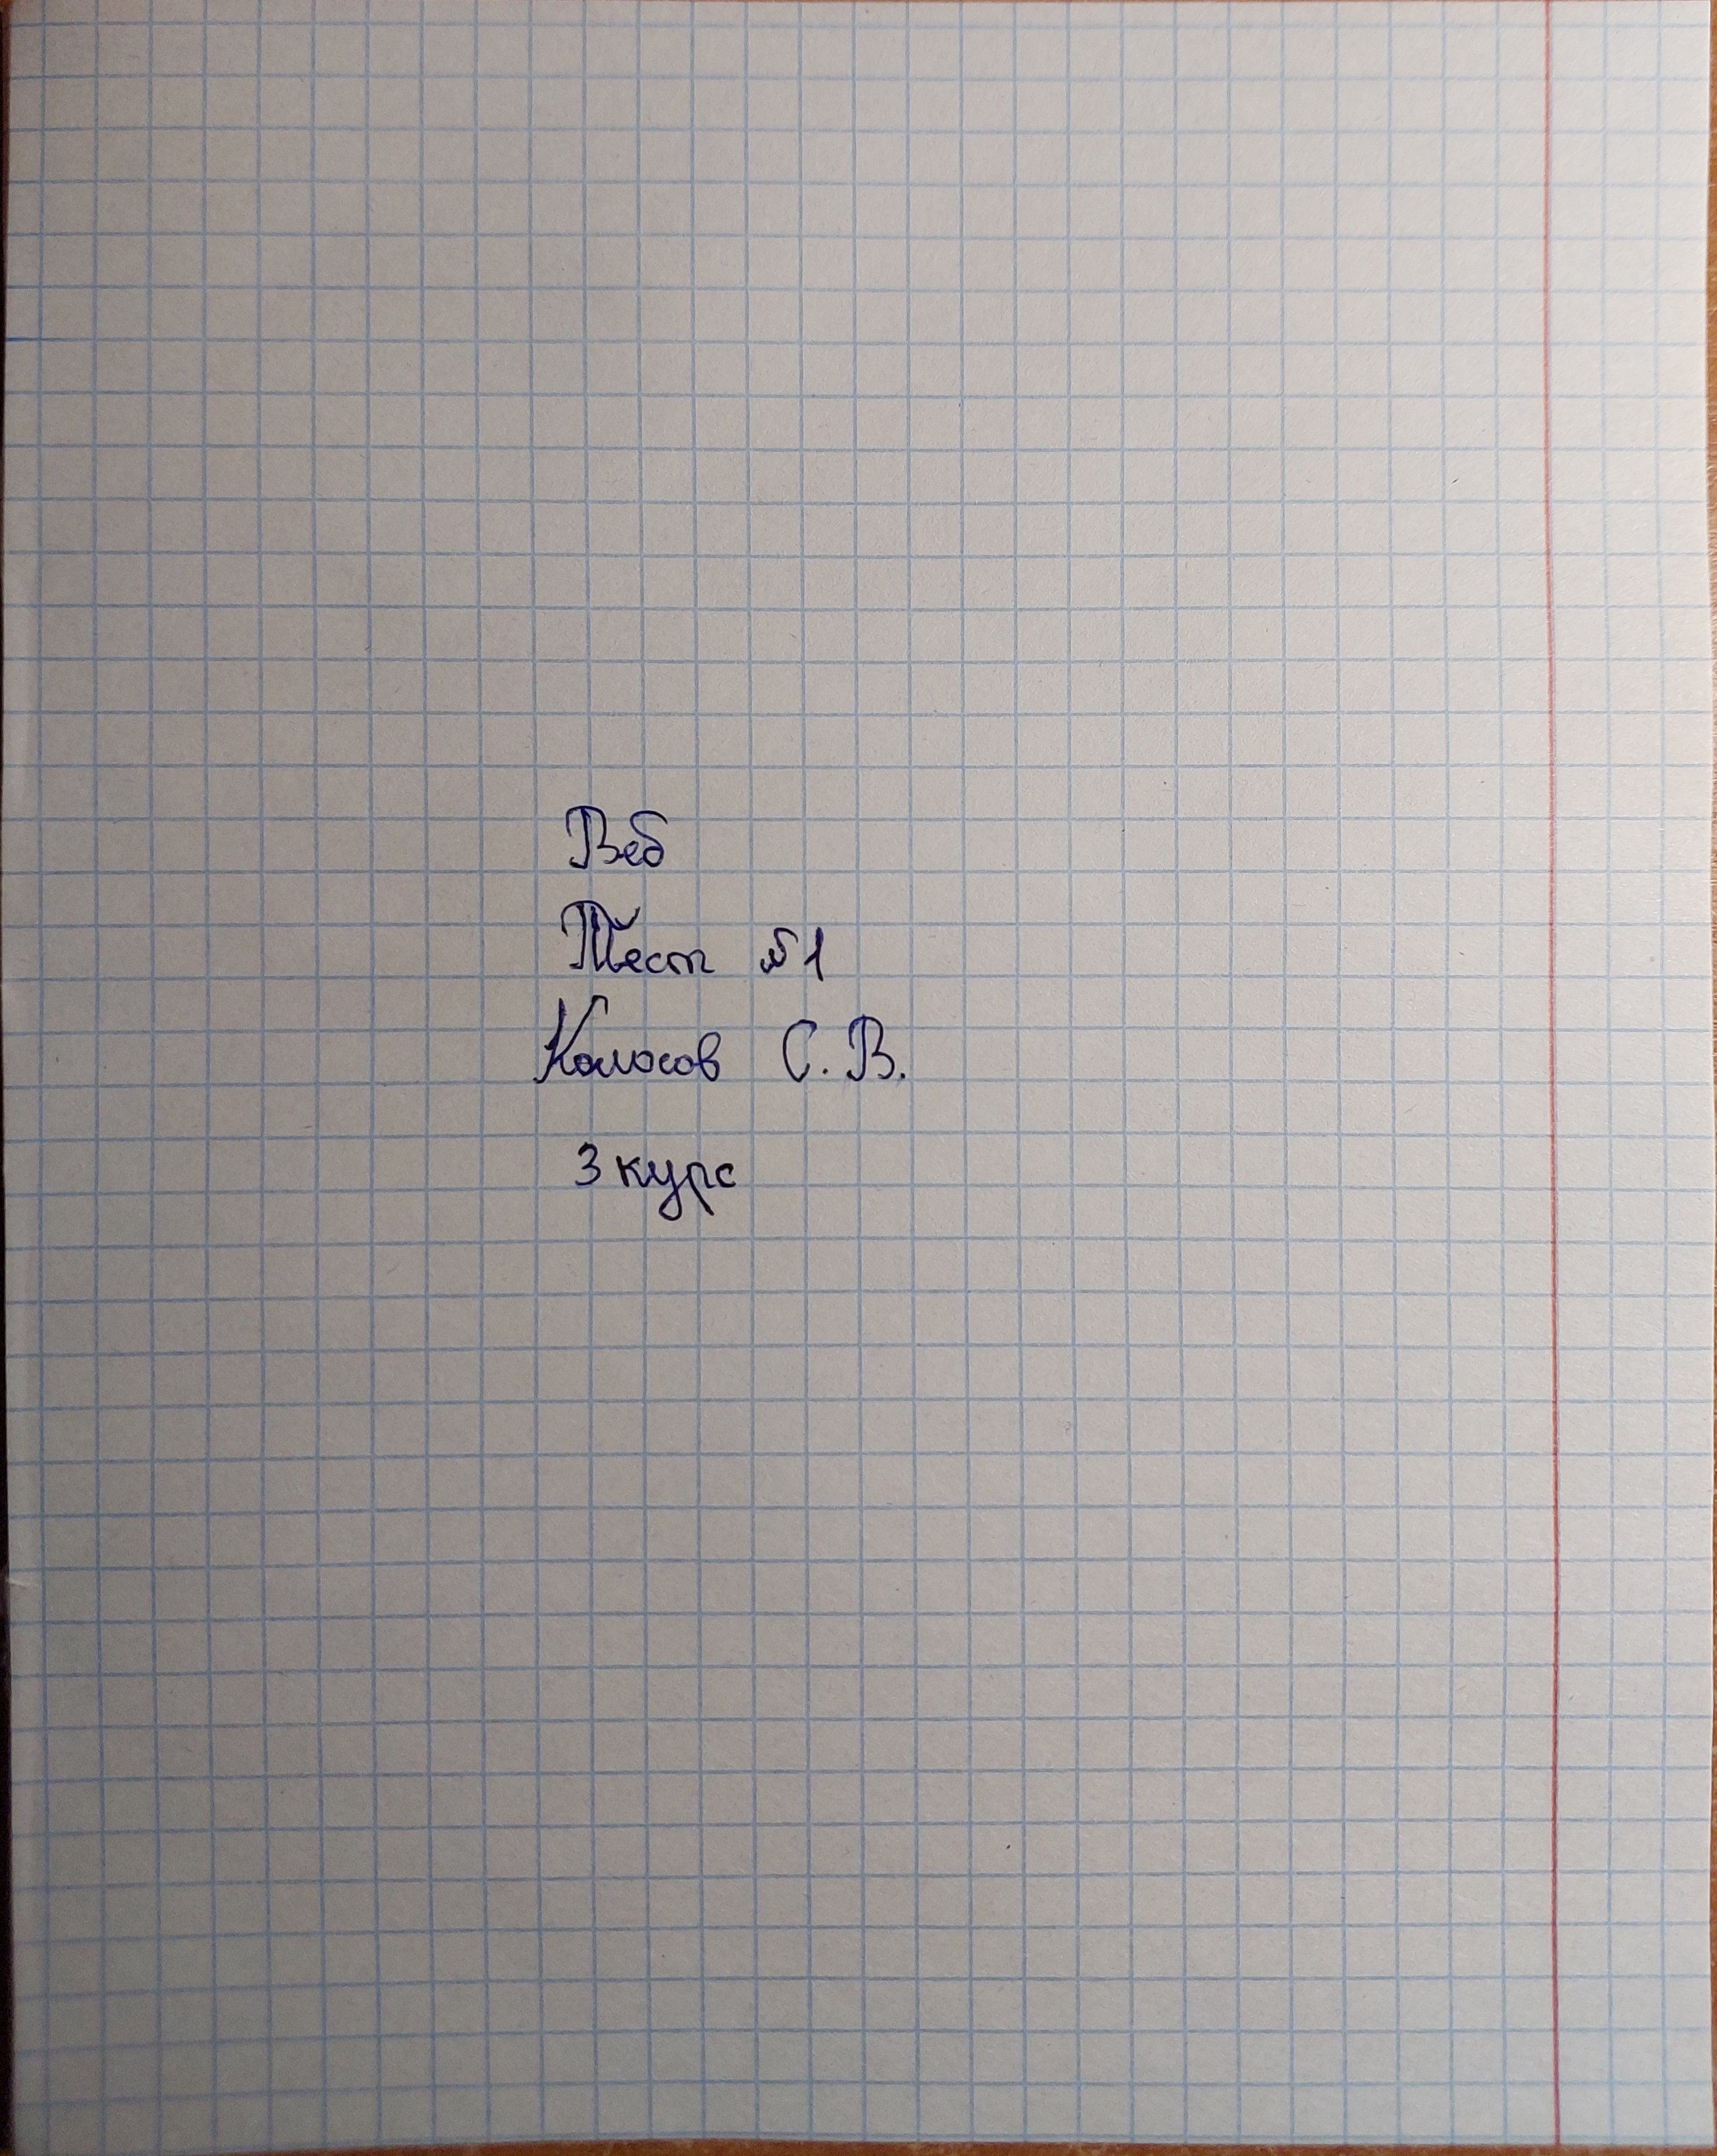 Веб
Тест №1
Колосов С. В.
3 курс